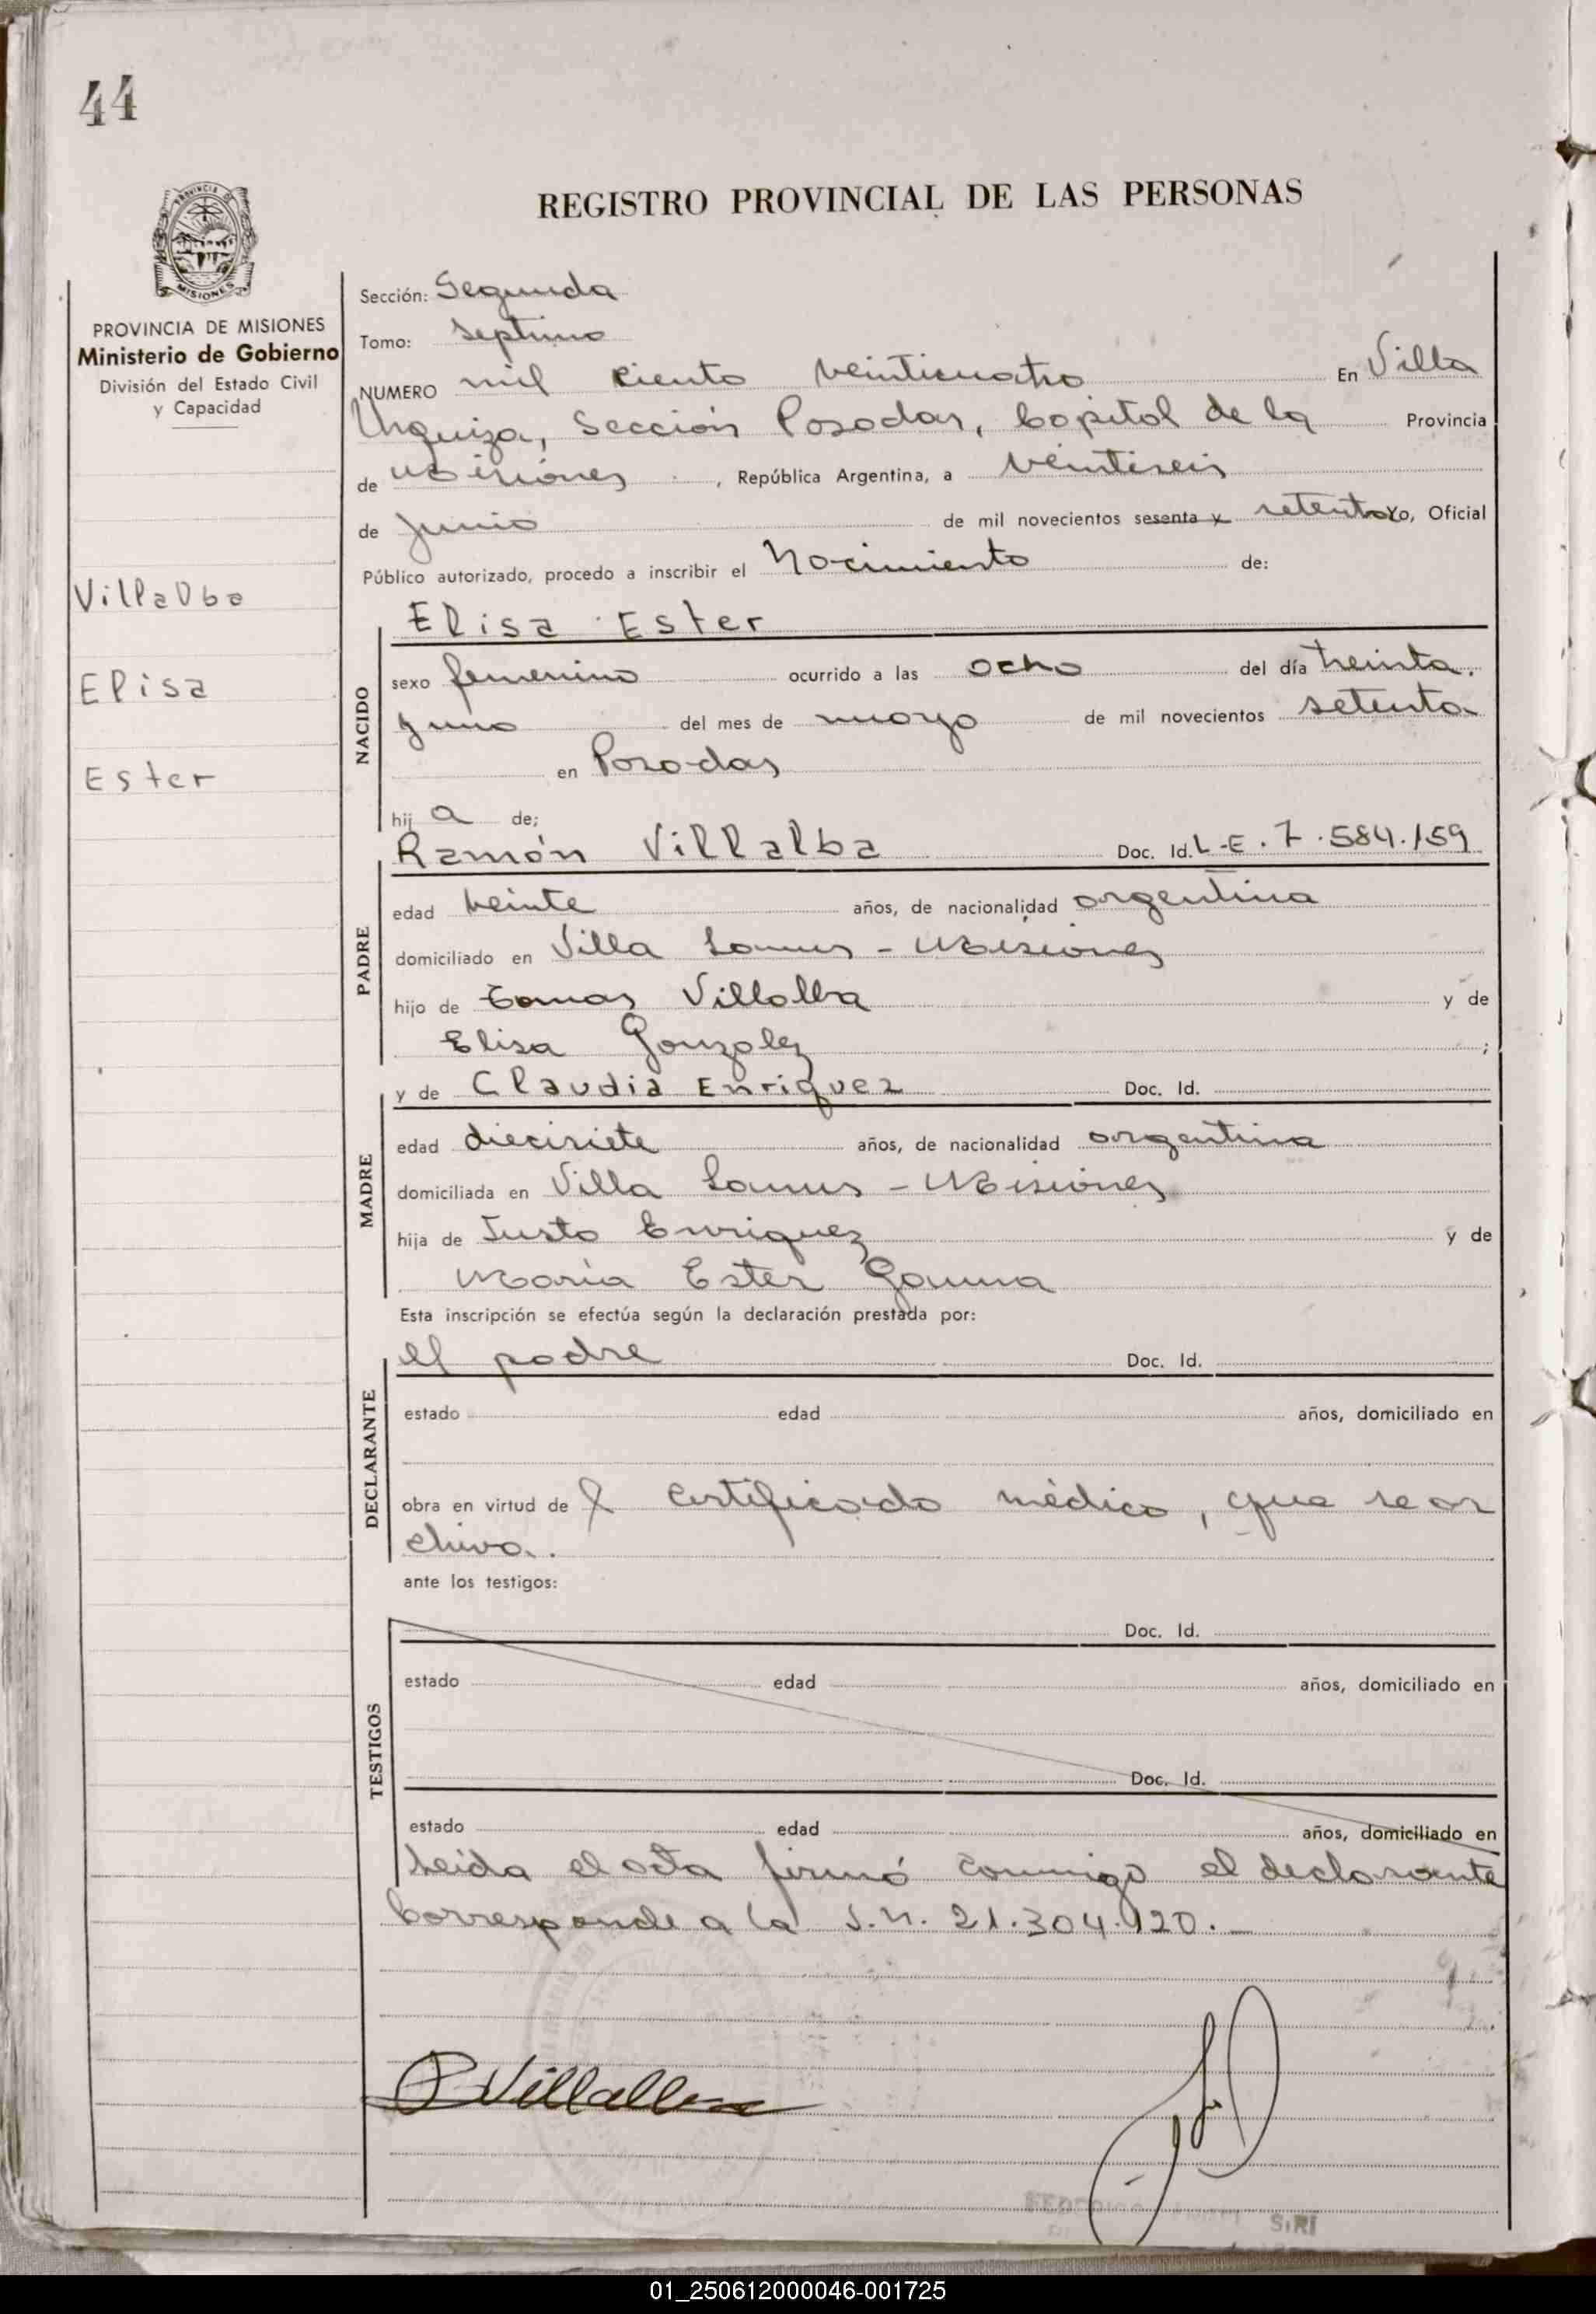 44
REGISTRO PROVINCIAL DE LAS PERSONAS
PROVINCIA DE MISIONES
Ministerio de Gobierno
División del Estado Civil
y Capacidad
Villalba
Elisa
Ester
Sección: Segunda
Tomo: septimo
NUMERO mil ciento veinticuatro En Villa
Urquiza, Sección Posadas, Capital de la Provincia
de Misiones, República Argentina, a veintiseis
de junio de mil novecientos sesenta y setenta Yo, Oficial
Público autorizado, procedo a inscribir el Nacimiento de:
Elisa Ester
NACIDO
sexo femenino ocurrido a las ocho del día treinta.
y uno del mes de mayo de mil novecientos setenta
en Posadas
hij a de;
Ramón Villalba Doc. Id. L-E. 7.584.159
PADRE
edad veinte años, de nacionalidad argentina
domiciliado en Villa Lanus - Misiones
hijo de Tomas Villalba y de
Elisa Gonzalez ;
y de Claudia Enriquez Doc. Id.
MADRE
edad diecisiete años, de nacionalidad argentina
domiciliada en Villa Lanus - Misiones
hija de Justo Enriquez y de
Maria Ester Gamma
Esta inscripción se efectúa según la declaración prestada por:
el padre Doc. Id.
DECLARANTE
estado edad años, domiciliado en
obra en virtud de l certificado médico, que se ar
chiva.
ante los testigos:
Doc. Id.
TESTIGOS
estado edad años, domiciliado en
Doc. Id.
estado edad años, domiciliado en
Leida el acta firmó conmigo el declarante
Corresponde a la J.N. 21.304.120.
R Villalba
SIRI
01_250612000046-001725